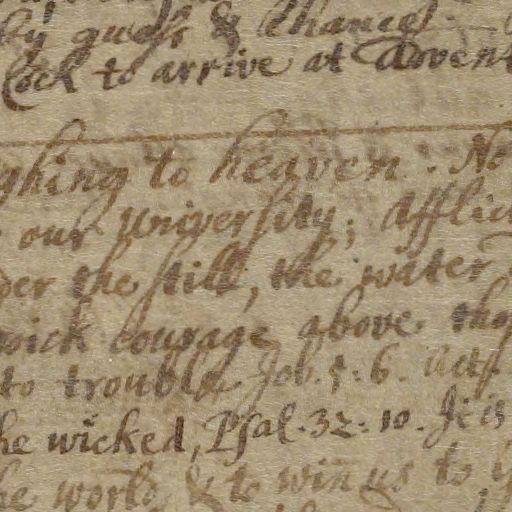 by guess & Chance: -
Cock to arrive at
ghing to heaven: No
our university; Afflic
der the still, the water
wick courage above tho
to trouble Job. 5. 6. Act
he wicked, Psal. 32. 10. It is
he world, & to win us to